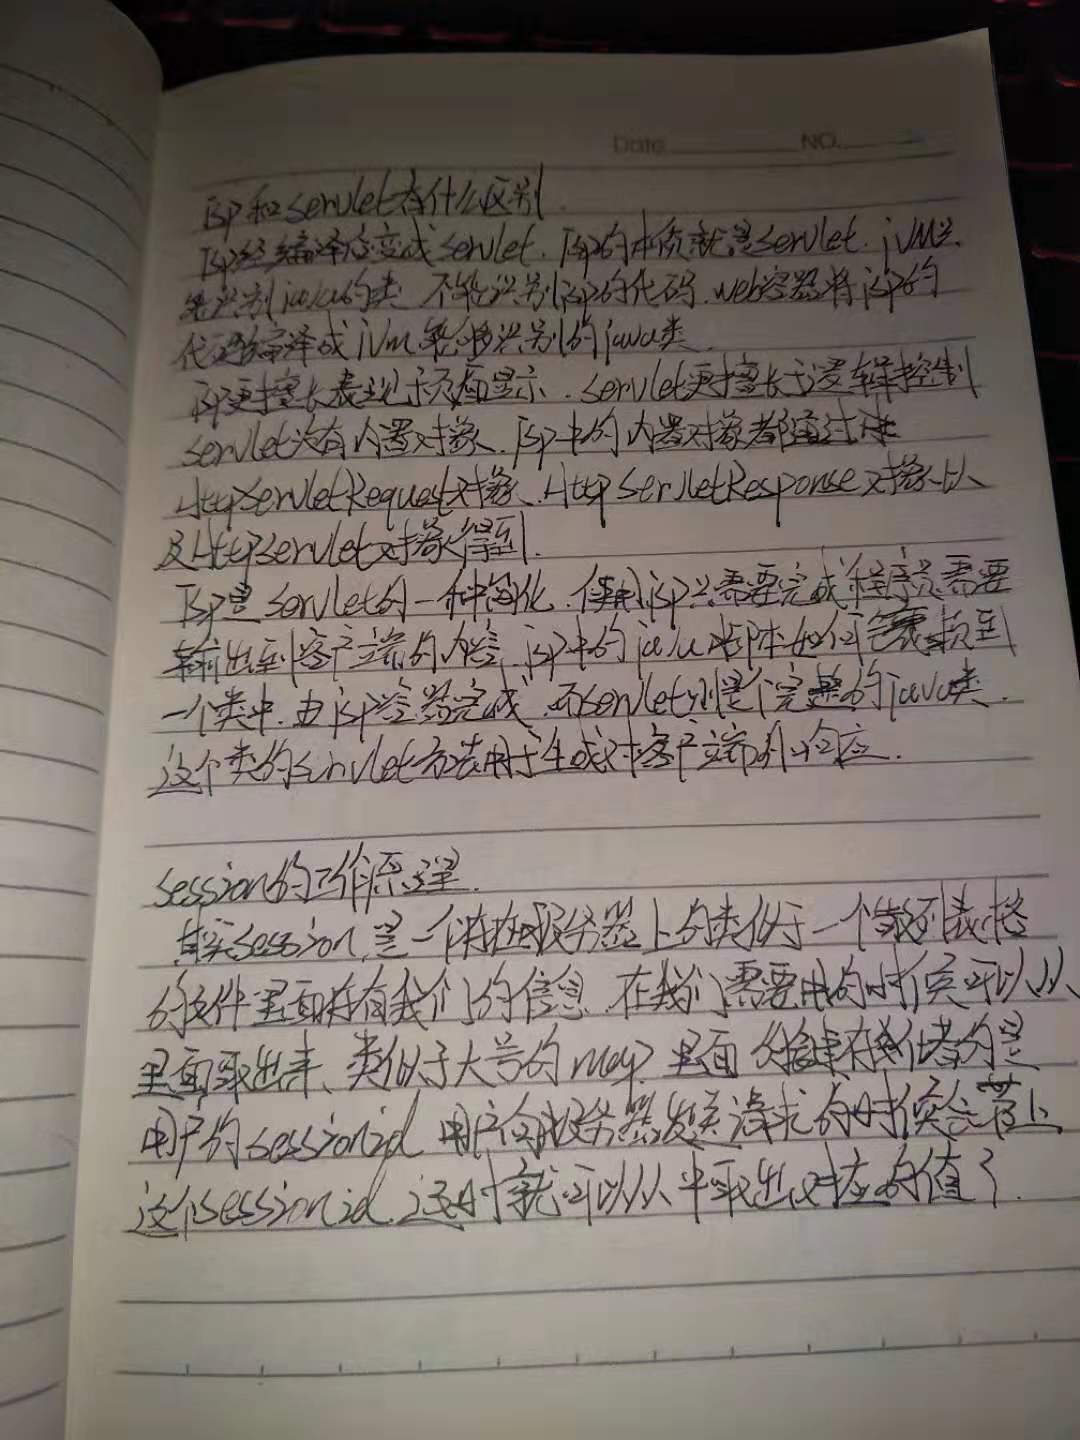 Date NO.
jsp和servlet有什么区别.
jsp经编译后变成servlet. jsp的本质就是servlet. jVM只
能识别java的类 不能识别jsp的代码. web容器将jsp的
代码编译成jVm能够识别的java类
jsp更擅长表现于页面显示. servlet更擅长于逻辑控制
servlet没有内置对象. jsp中的内置对象都通过
HttpServletRequest对象、HttpServletResponse对象以
及HttpServlet对象得到.
jsp是servlet的一种简化. 使用jsp只需要完成程序员需要
输出到客户端的内容. jsp中的java脚本如何镶嵌到
一个类中. 由jsp容器完成. 而servlet则是个完整的java类.
这个类的servlet方法用于生成对客户端的响应.
session的工作原理.
其实session是一个存在服务器上的类似于一个散列表格
的文件里面存有我们的信息. 在我们需要用的时候可以从
里面取出来、类似于大号的map 里面的键存储者的是
用户的sessionid 用户向服务器发送请求的时候会带上
这个sessionid. 这时就可以从中取出对应的值了.